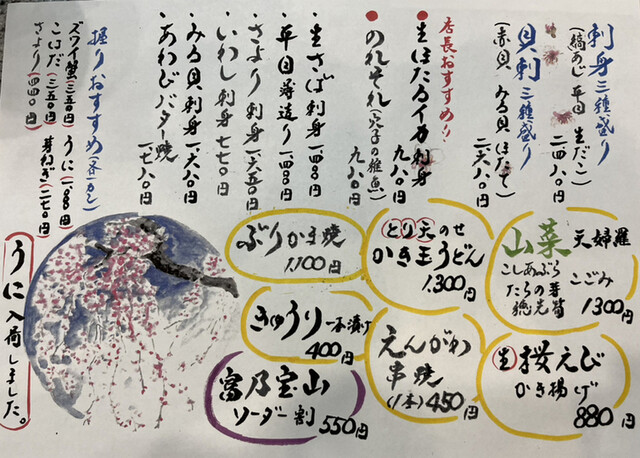 刺身三種盛り
(縞あじ 平目 生だこ)
二四八〇円
貝刺三種盛り
(赤貝 みる貝 ほたて)
二六八〇円
店長おすすめ!!
・生ほたるイカ刺身
九八〇円
・のれそれ(穴子の稚魚)
九八〇円
・生さば刺身 一四八〇円
・平目薄造り 一四八〇円
・さより刺身 一六五〇円
・いわし刺身 七七〇円
・みる貝刺身 一六八〇円
・あわびバター焼
一七八〇円
握りおすすめ(各一カン)
ズワイ蟹(三五〇円)
うに(一〇〇〇円)
こはだ(三五〇円)
芽ねぎ(二七〇円)
さより(四四〇円)
うに入荷しました。
山菜天婦羅
こしあぶら こごみ
たらの芽
1300円
とり天のせ
かき玉うどん
1300円
ぶりかま焼
1,100円
きゅうり一本漬け
400円
富乃宝山
ソーダー割 550円
えんがわ
串焼
(1本)450円
生桜えび
かき揚げ
880円